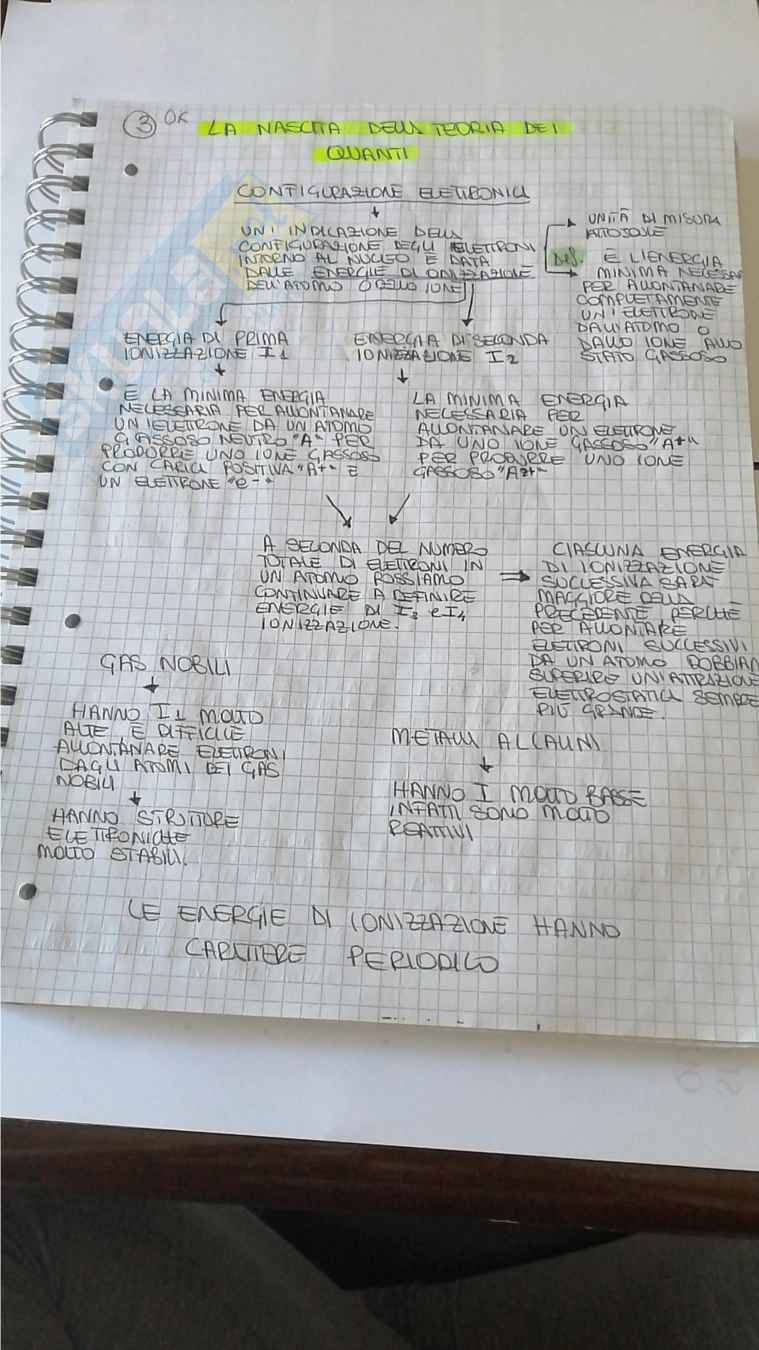 3 OK LA NASCITA DELLA TEORIA DEI
QUANTI
CONFIGURAZIONE ELETTRONICA
UN'INDICAZIONE DELLA
CONFIGURAZIONE DEGLI ELETTRONI
INTORNO AL NUCLEO È DATA
DALLE ENERGIE DI IONIZZAZIONE
DELL'ATOMO O DELLO IONE
UNITÀ DI MISURA
ATTOJOULE
DEF. È L'ENERGIA
MINIMA NECESSA
PER ALLONTANARE
COMPLETAMENTE
UN'ELETTRONE
DALL'ATOMO O
DALLO IONE ALLO
STATO GASSOSO
ENERGIA DI PRIMA
IONIZZAZIONE I1
ENERGIA DI SECONDA
IONIZZAZIONE I2
È LA MINIMA ENERGIA
NECESSARIA PER ALLONTANARE
UN'ELETTRONE DA UN ATOMO
GASSOSO NEUTRO "A" PER
PRODURRE UNO IONE GASSOSO
CON CARICA POSITIVA "A+" E
UN ELETTRONE "e-"
LA MINIMA ENERGIA
NECESSARIA PER
ALLONTANARE UN ELETTRONE
DA UNO IONE GASSOSO "A+"
PER PRODURRE UNO IONE
GASSOSO "A2+"
A SECONDA DEL NUMERO
TOTALE DI ELETTRONI IN
UN ATOMO POSSIAMO
CONTINUARE A DEFINIRE
ENERGIE DI I3 e I4
IONIZZAZIONE.
CIASCUNA ENERGIA
DI IONIZZAZIONE
SUCCESSIVA SARA'
MAGGIORE DELLA
PRECEDENTE PERCHÉ
PER ALLONTARE
ELETTRONI SUCCESSIVI
DA UN ATOMO DOBBIAM
SUPERIRE UN'ATTRAZIONE
ELETTROSTATICA SEMPRE
PIÙ GRANDE.
GAS NOBILI
HANNO I1 MOLTO
ALTE, È DIFFICILE
ALLONTANARE ELETTRONI
DAGLI ATOMI DEI GAS
NOBILI
HANNO STRUTTURE
ELETTRONICHE
MOLTO STABILI.
METALLI ALCALINI
HANNO I MOLTO BASSE
INFATTI SONO MOLTO
REATTIVI
LE ENERGIE DI IONIZZAZIONE HANNO
CARATTERE PERIODICO